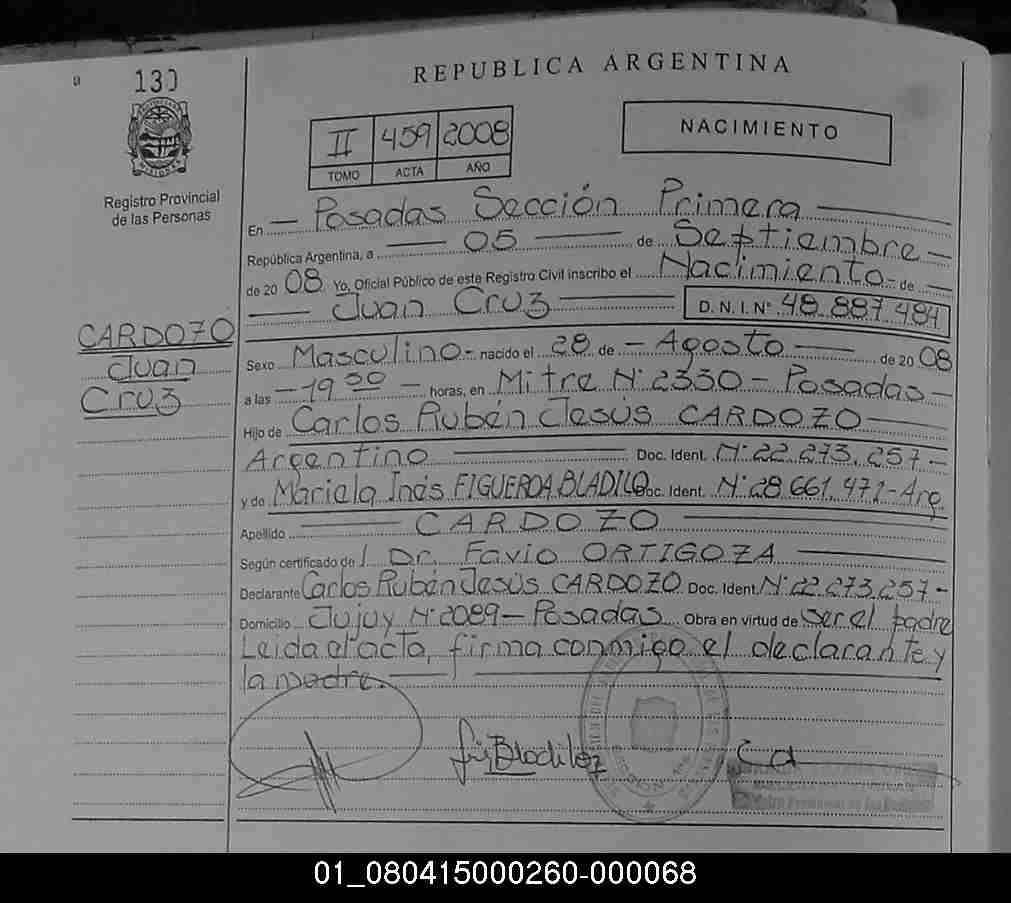 130
REPUBLICA ARGENTINA
II 459 2008
TOMO ACTA AÑO
NACIMIENTO
Registro Provincial
de las Personas
En Posadas Sección Primera
República Argentina, a 05 de Septiembre
de 20 08 Yo, Oficial Público de este Registro Civil inscribo el Nacimiento de
Juan Cruz D. N. I. N° 48.887.484
CARDOZO
Juan
Cruz
Sexo Masculino - nacido el 28 de - Agosto de 20 08
a las - 19 30 - horas, en Mitre N° 2330 - Posadas -
Hijo de Carlos Rubén Jesús CARDOZO
Argentino Doc. Ident. N° 22.273.257 -
y de Mariela Inés FIGUEROA BLADILO Doc. Ident. N° 28.661.471 - Arg
Apellido CARDOZO
Según certificado de Dr. Favio ORTIGOZA
Declarante Carlos Rubén Jesús CARDOZO Doc. Ident. N° 22.273.257 -
Domicilio Jujuy N° 2089 - Posadas Obra en virtud de ser el padre
Leida el acta, firma conmigo el declarante y
la madre.
01_080415000260-000068